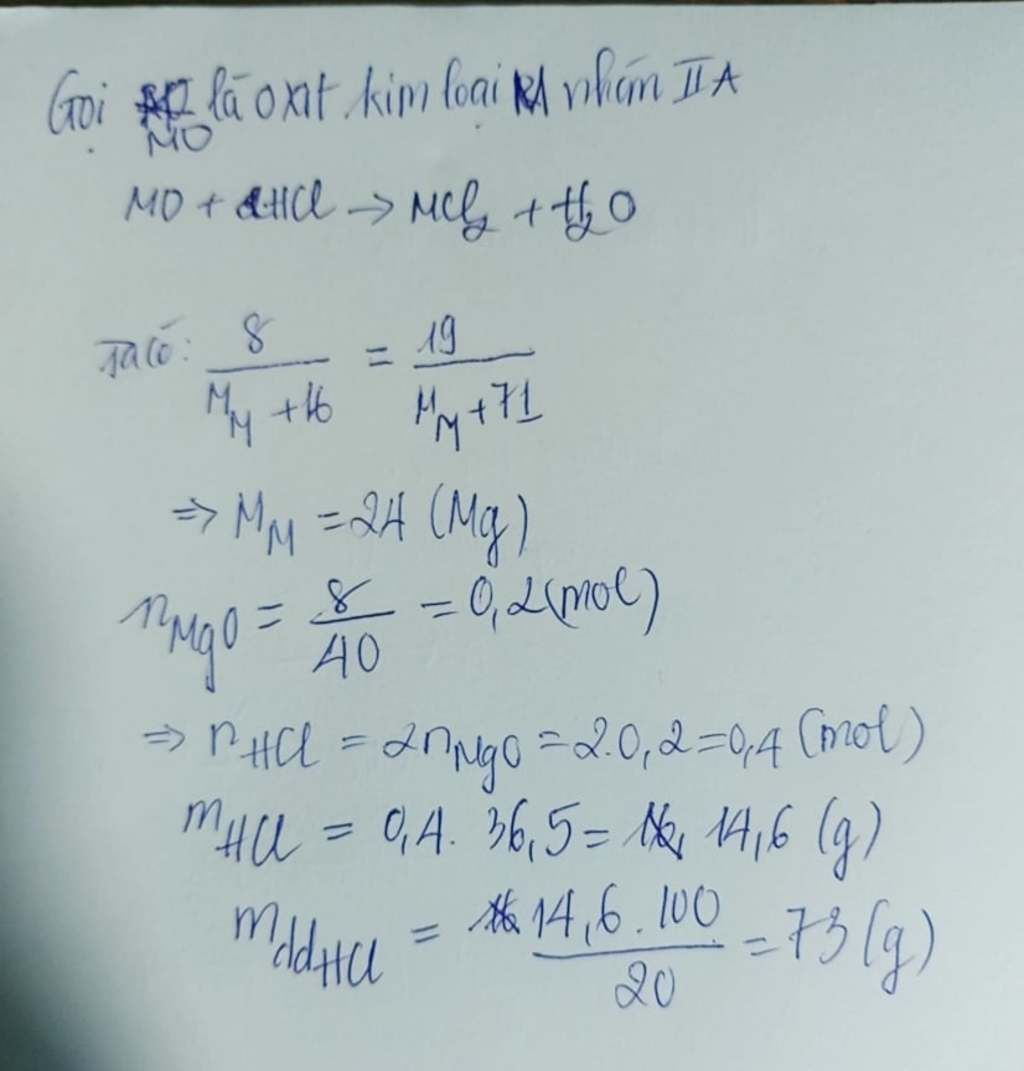 Gọi MO là oxit kim loại M nhóm IIA
MO + 2HCl → MCl₂ + H₂O
Ta có: 8/(M_M + 16) = 19/(M_M + 71)
⇒ M_M = 24 (Mg)
n_MgO = 8/40 = 0,2 (mol)
⇒ n_HCl = 2n_MgO = 2.0,2 = 0,4 (mol)
m_HCl = 0,4. 36,5 = 14,6 (g)
m_ddHCl = 14,6.100/20 = 73 (g)